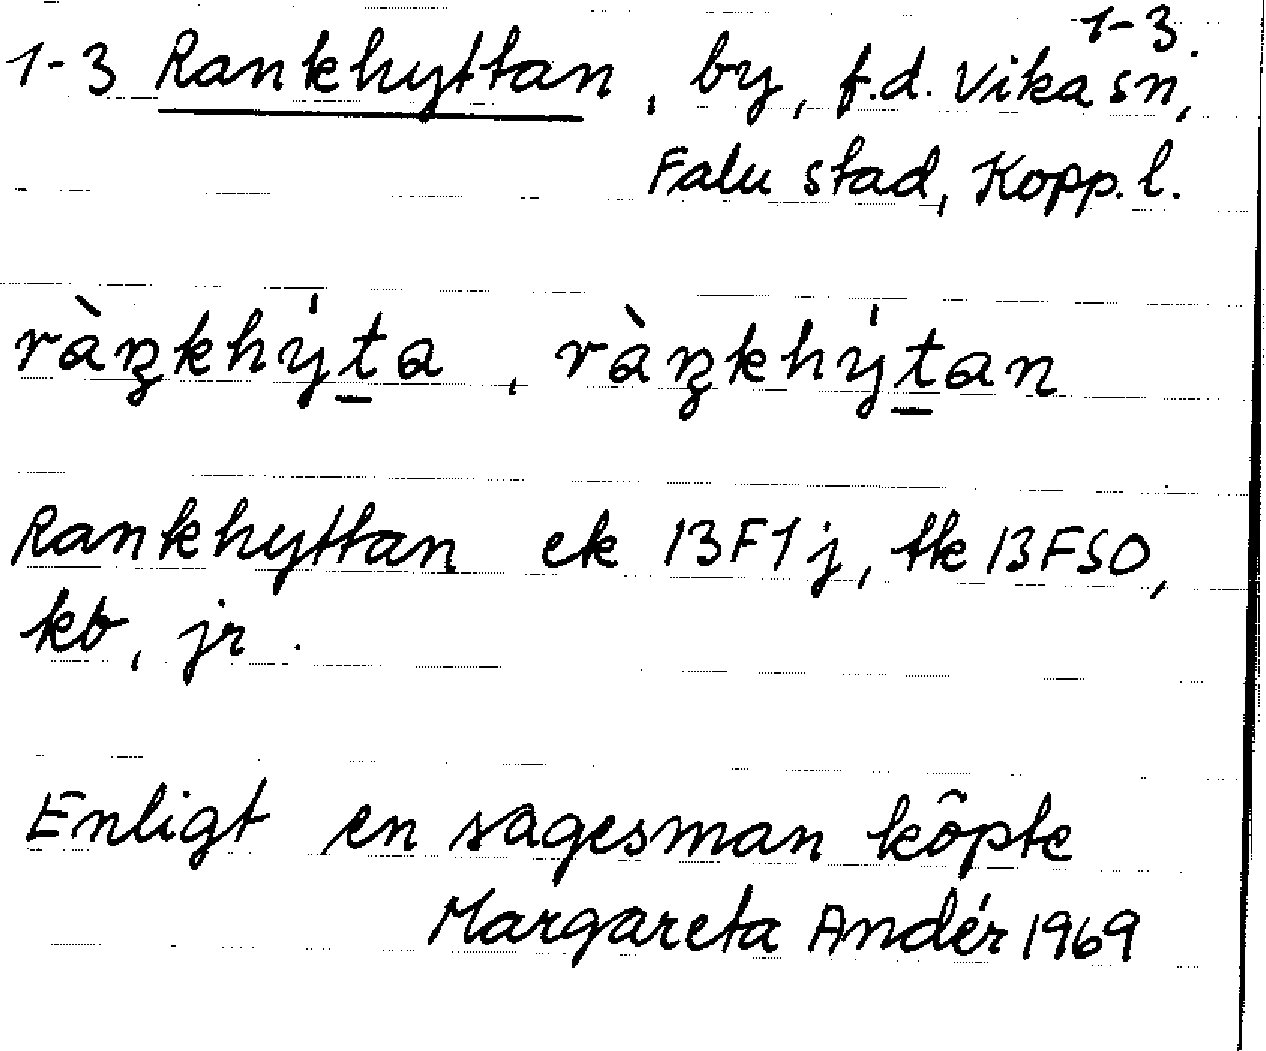 1-3.
1-3 Rankhyttan, by, f.d. Vika sn,
Falu stad, Kopp. l.
ràŋkhy̍t̠a, ràŋkhy̍t̠an
Rankhyttan ek 13F1j, tk 13FSO,
kb, jr.
Enligt en sagesman köpte
Margareta Andér 1969